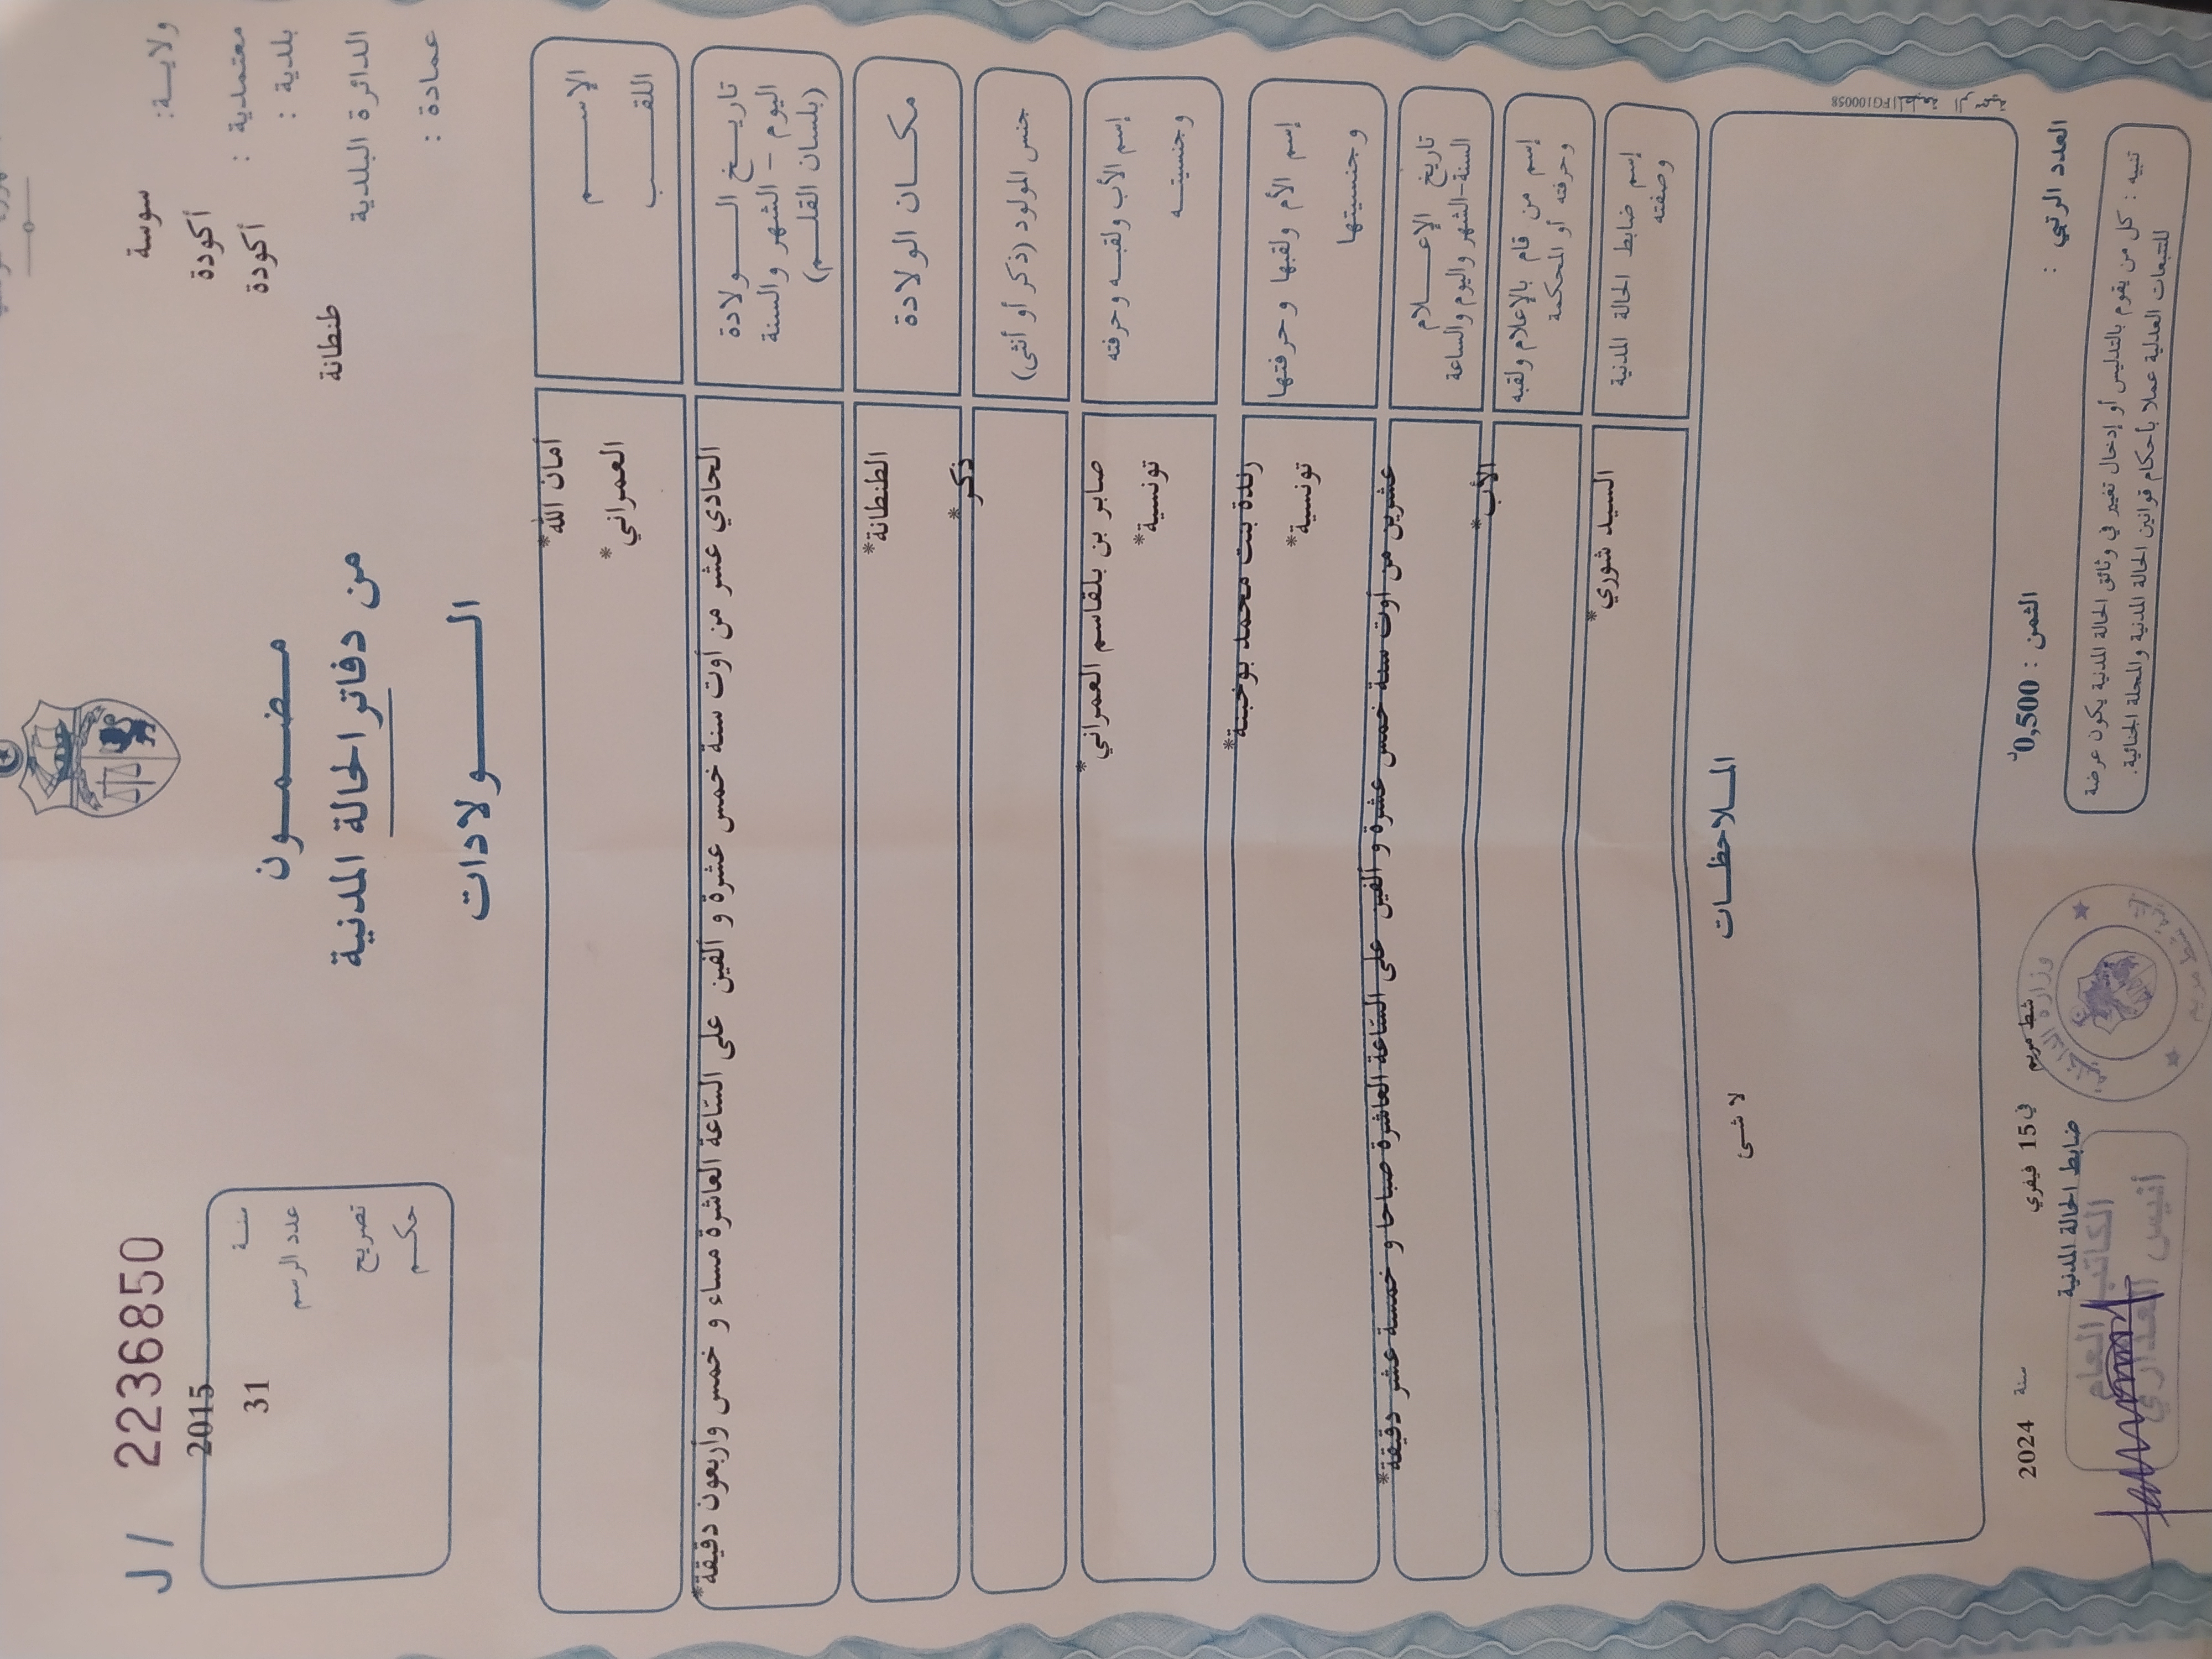 ولايـــة: سوسة
معتمدية : أكودة
بلدية : أكودة
الدائرة البلدية طنطانة
عمادة :
مـضـمـــون
من دفاتر الحالة المدنية
الـــــولادات
J / 2236850
سنـــة 2015
عدد الرسم 31
تصريح
حكـم
الإســـــم أمان الله*
اللقـــــب العمراني*
تاريـــخ الـــــولادة
اليوم - الشهر والسنة
(بلسان القلـــم)
الحادي عشر من أوت سنة خمس عشرة و ألفين على السّاعة العاشرة مساء و خمس وأربعون دقيقة*
مكـــان الولادة الطنطانة*
جنس المولود (ذكر أو أنثى) ذكر*
إسم الأب ولقبـــه وحرفته صابر بن بلقاسم العمراني*
وجنسيتـــه تونسية*
إسم الأم ولقبها وحرفتها رندة بنت محمد بوخبنة*
وجنسيتها تونسية*
تاريخ الإعـــلام
السنة-الشهر واليوم والساعة
عشرين من أوت سنة خمس عشرة و ألفين على السّاعة العاشرة صباحا و خمسة عشر دقيقة*
إسم من قام بالإعلام ولقبه
وحرفته أو المحكمة
الأب*
إسم ضابط الحالة المدنية
وصفته
السيد شوري*
المــلاحظـــات
لا شئ
العدد الرتبي :
الثمن : 0,500د
شط مريم في 15 فيفري سنة 2024
ضابط الحالة المدنية
الكاتب العام
أنيس العذاري
تنبيه : كل من يقوم بالتدليس أو إدخال تغيير في وثائق الحالة المدنية يكون عرضة
للتتبعات العدلية عملا بأحكام قوانين الحالة المدنية والمجلة الجنائية.
FG100058